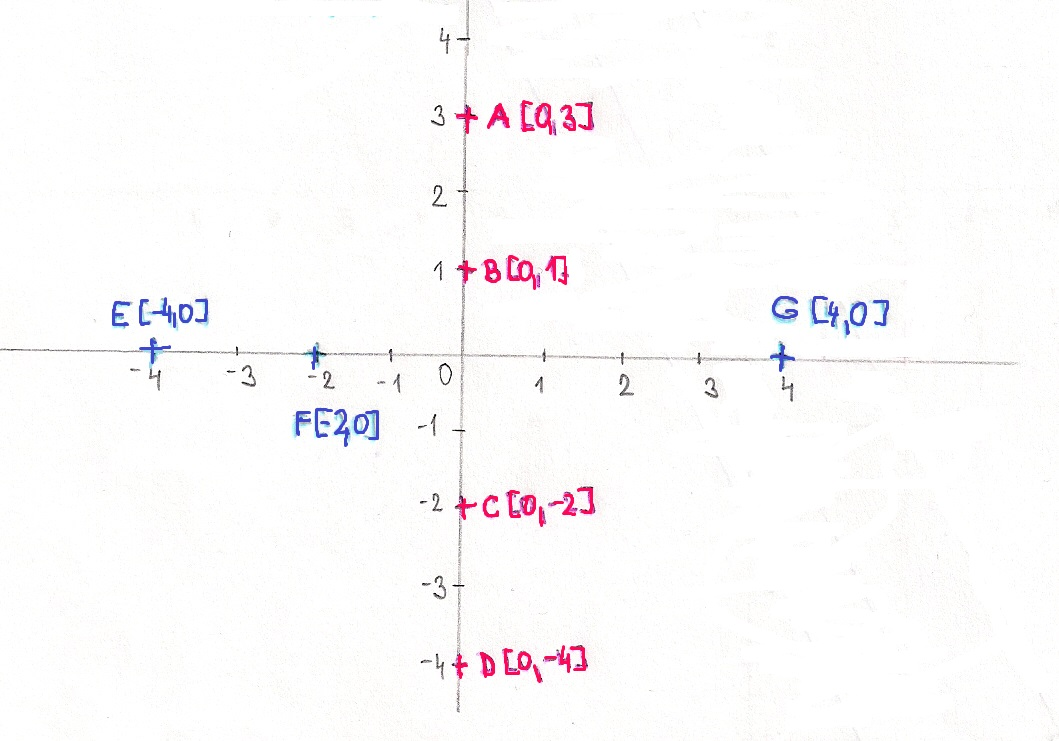 4
3 A [0,3]
2
1 B[0,1]
E [-4,0] G [4,0]
-4 -3 -2 -1 0 1 2 3 4
F[-2,0] -1
-2 C [0,-2]
-3
-4 D [0,-4]